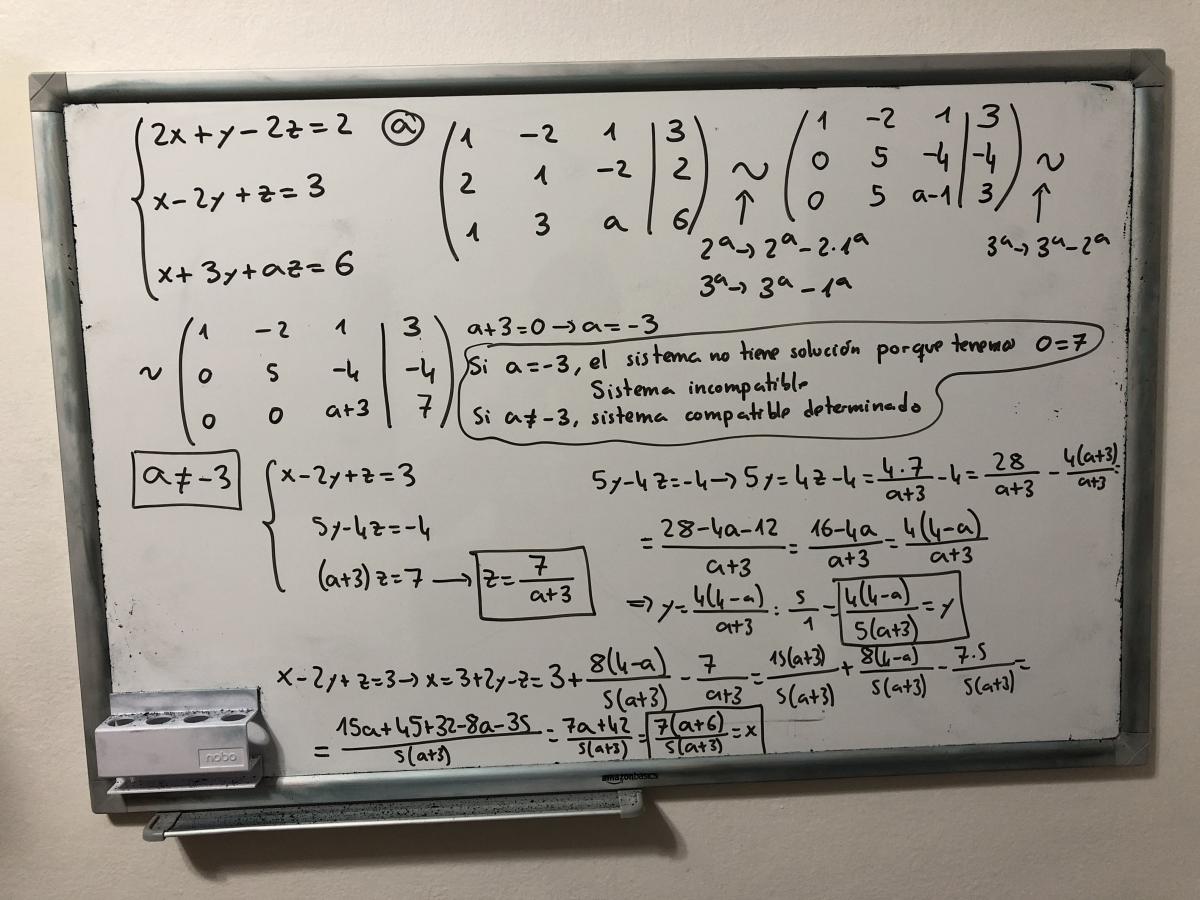 2x+y-2z=2
x-2y+z=3
x+3y+az=6
ⓐ
1 -2 1 | 3
2 1 -2 | 2
1 3 a | 6
~
↑
2ª→2ª-2·1ª
3ª→3ª-1ª
1 -2 1 | 3
0 5 -4 | -4
0 5 a-1 | 3
~
↑
3ª→3ª-2ª
~
1 -2 1 | 3
0 5 -4 | -4
0 0 a+3 | 7
a+3=0→a=-3
Si a=-3, el sistema no tiene solución porque tenemos 0=7
Sistema incompatible
Si a≠-3, sistema compatible determinado
a≠-3
x-2y+z=3
5y-4z=-4
(a+3)z=7 → z=7/(a+3)
5y-4z=-4→5y=4z-4=4·7/(a+3)-4=28/(a+3)-4(a+3)/(a+3)=
=(28-4a-12)/(a+3)=(16-4a)/(a+3)=4(4-a)/(a+3)
⇒y=4(4-a)/(a+3):5/1=4(4-a)/5(a+3)=y
x-2y+z=3→x=3+2y-z=3+8(4-a)/5(a+3)-7/(a+3)=15(a+3)/5(a+3)+8(4-a)/5(a+3)-7·5/5(a+3)=
=(15a+45+32-8a-35)/5(a+3)=(7a+42)/5(a+3)=7(a+6)/5(a+3)=x
nobo
amazonbasics